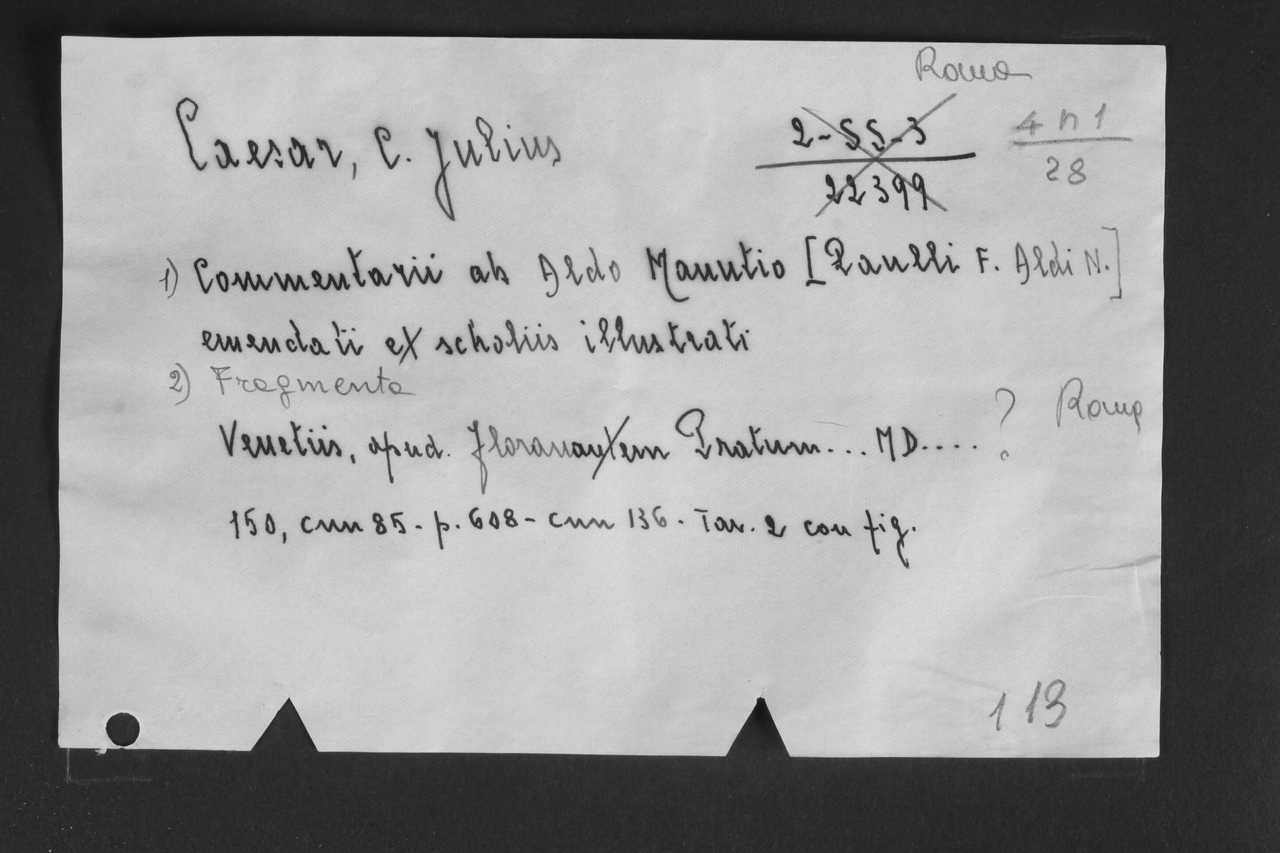 Roma
Caesar, C. Julius
2-55-3
22399
4 n 1
28
1) Commentarii ab Aldo Manutio [Paulli F. Aldi N.]
emendati et scholiis illustrati
2) Fragmenta
Venetiis, apud. Florauantem Pratum... MD.... ? Roma
150, cnn 85 - p. 608 - cnn 136 - Tav. 2 con fig.
1 13